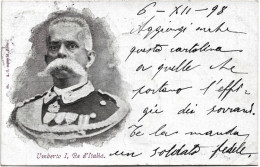 6 - XII - 98
Aggiungi anche
questa cartolina
a quelle che
portano l'effi-
gie dei sovrani.
Te la manda
un soldato fedele.
Umberto I, Re d'Italia.